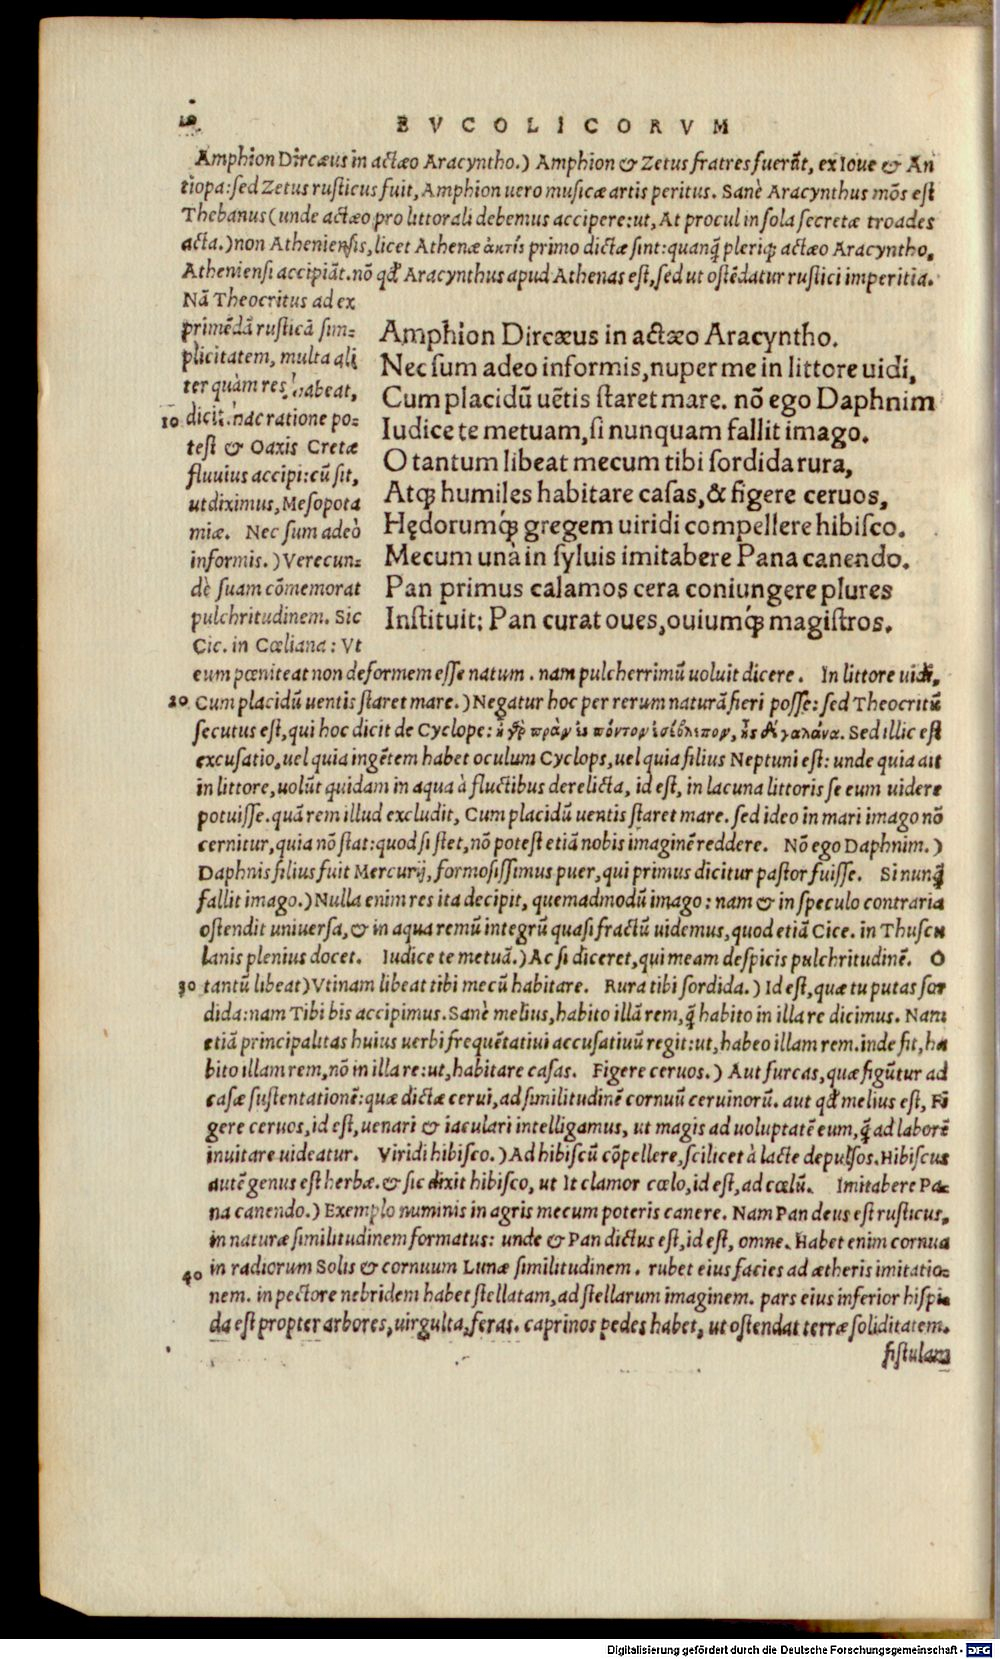 BVCOLICORVM
Amphion Dircæus in actæo Aracyntho.) Amphion & Zetus fratres fuerũt, ex Ioue & An
tiopa: sed Zetus rusticus fuit, Amphion uero musicæ artis peritus. Sanè Aracynthus mõs est
Thebanus (unde actæo pro littorali debemus accipere: ut, At procul in sola secretæ troades
acta.) non Atheniensis, licet Athenæ ἀκτὶς primo dictæ sint: quanq̃ pleriq; actæo Aracyntho,
Atheniensi accipiãt. nõ qđ Aracynthus apud Athenas est, sed ut ostẽdatur rustici imperitia.
Nã Theocritus ad ex
primẽdã rusticã sim-
plicitatem, multa ali
ter quàm res habeat,
10 dicit. hac ratione po-
test & Oaxis Cretæ
fluuius accipi: cũ sit,
ut diximus, Mesopota
miæ. Nec sum adeò
informis.) Verecun-
dè suam cõmemorat
pulchritudinem. Sic
Cic. in Cœliana: Vt
Amphion Dircæus in actæo Aracyntho.
Nec sum adeo informis, nuper me in littore uidi,
Cum placidũ uẽtis staret mare. nõ ego Daphnim
Iudice te metuam, si nunquam fallit imago.
O tantum libeat mecum tibi sordida rura,
Atq; humiles habitare casas, & figere ceruos,
Hędorumq́; gregem uiridi compellere hibisco.
Mecum unà in syluis imitabere Pana canendo.
Pan primus calamos cera coniungere plures
Instituit: Pan curat oues, ouiumq́; magistros.
eum pœniteat non deformem esse natum. nam pulcherrimũ uoluit dicere. In littore uidi,
20 Cum placidũ uentis staret mare.) Negatur hoc per rerum naturã fieri posse: sed Theocritũ
secutus est, qui hoc dicit de Cyclope: ἦ γὰρ πρὰν ἐς πόντον ἐσέβλεπον, ἦς δὲ γαλάνα. Sed illic est
excusatio, uel quia ingẽtem habet oculum Cyclops, uel quia filius Neptuni est: unde quia ait
in littore, uolũt quidam in aqua à fluctibus derelicta, id est, in lacuna littoris se eum uidere
potuisse. quã rem illud excludit, Cum placidũ uentis staret mare. sed ideo in mari imago nõ
cernitur, quia nõ stat: quod si stet, nõ potest etiã nobis imaginẽ reddere. Nõ ego Daphnim.)
Daphnis filius fuit Mercurij, formosissimus puer, qui primus dicitur pastor fuisse. Si nunq̃
fallit imago.) Nulla enim res ita decipit, quemadmodũ imago: nam & in speculo contraria
ostendit uniuersa, & in aqua remũ integrũ quasi fractũ uidemus, quod etiã Cice. in Thuscu
lanis plenius docet. Iudice te metuã.) Ac si diceret, qui meam despicis pulchritudinẽ. O
30 tantũ libeat) Vtinam libeat tibi mecũ habitare. Rura tibi sordida.) Id est, quæ tu putas sor
dida: nam Tibi bis accipimus. Sanè melius, habito illã rem, q̃ habito in illa re dicimus. Nam
etiã principalitas huius uerbi frequẽtatiui accusatiuũ regit: ut, habeo illam rem. inde fit, ha
bito illam rem, nõ in illa re: ut, habitare casas. Figere ceruos.) Aut furcas, quæ figũtur ad
casæ sustentationẽ: quæ dictæ cerui, ad similitudinẽ cornuũ ceruinorũ. aut qđ melius est, Fi
gere ceruos, id est, uenari & iaculari intelligamus, ut magis ad uoluptatẽ eum, q̃ ad laborẽ
inuitare uideatur. Viridi hibisco.) Ad hibiscũ cõpellere, scilicet à lacte depulsos. Hibiscus
autẽ genus est herbæ. & sic dixit hibisco, ut It clamor cœlo, id est, ad cœlũ. Imitabere Pa-
na canendo.) Exemplo numinis in agris mecum poteris canere. Nam Pan deus est rusticus,
in naturæ similitudinem formatus: unde & Pan dictus est, id est, omne. Habet enim cornua
40 in radiorum Solis & cornuum Lunæ similitudinem. rubet eius facies ad ætheris imitatio-
nem. in pectore nebridem habet stellatam, ad stellarum imaginem. pars eius inferior hispi
da est propter arbores, uirgulta, feras. caprinos pedes habet, ut ostendat terræ soliditatem.
fistulam
Digitalisierung gefördert durch die Deutsche Forschungsgemeinschaft - DFG